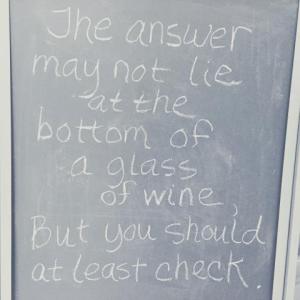 The answer
may not lie
at the
bottom of
a glass
of wine,
But you should
at least check.